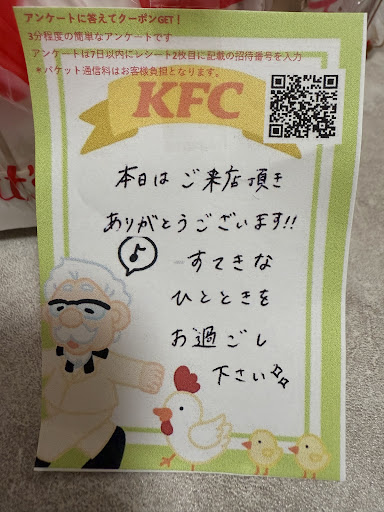 アンケートに答えてクーポンGET！
3分程度の簡単なアンケートです
アンケートは7日以内にレシート2枚目に記載の招待番号を入力
＊パケット通信料はお客様負担となります。
KFC
本日は ご来店頂き
ありがとうございます!!
♪ すてきな
ひとときを
お過ごし
下さい